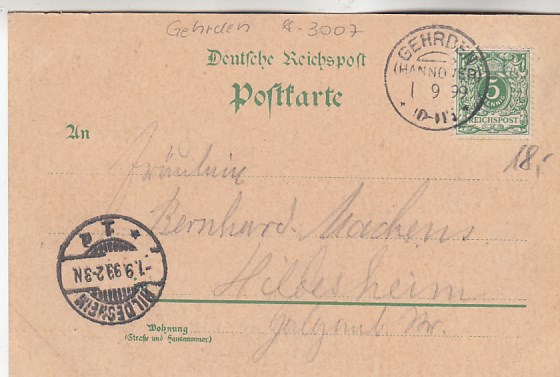 Gehrden 3007
Deutsche Reichspost
Postkarte
GEHRDEN
(HANNOVER)
1 9 99
5
REICHSPOST
18,-
An
Fräulein
Bernhard Machens
Hildesheim
HILDESHEIM
-1.9.99.2-3N
Wohnung
(Straße und Hausnummer)